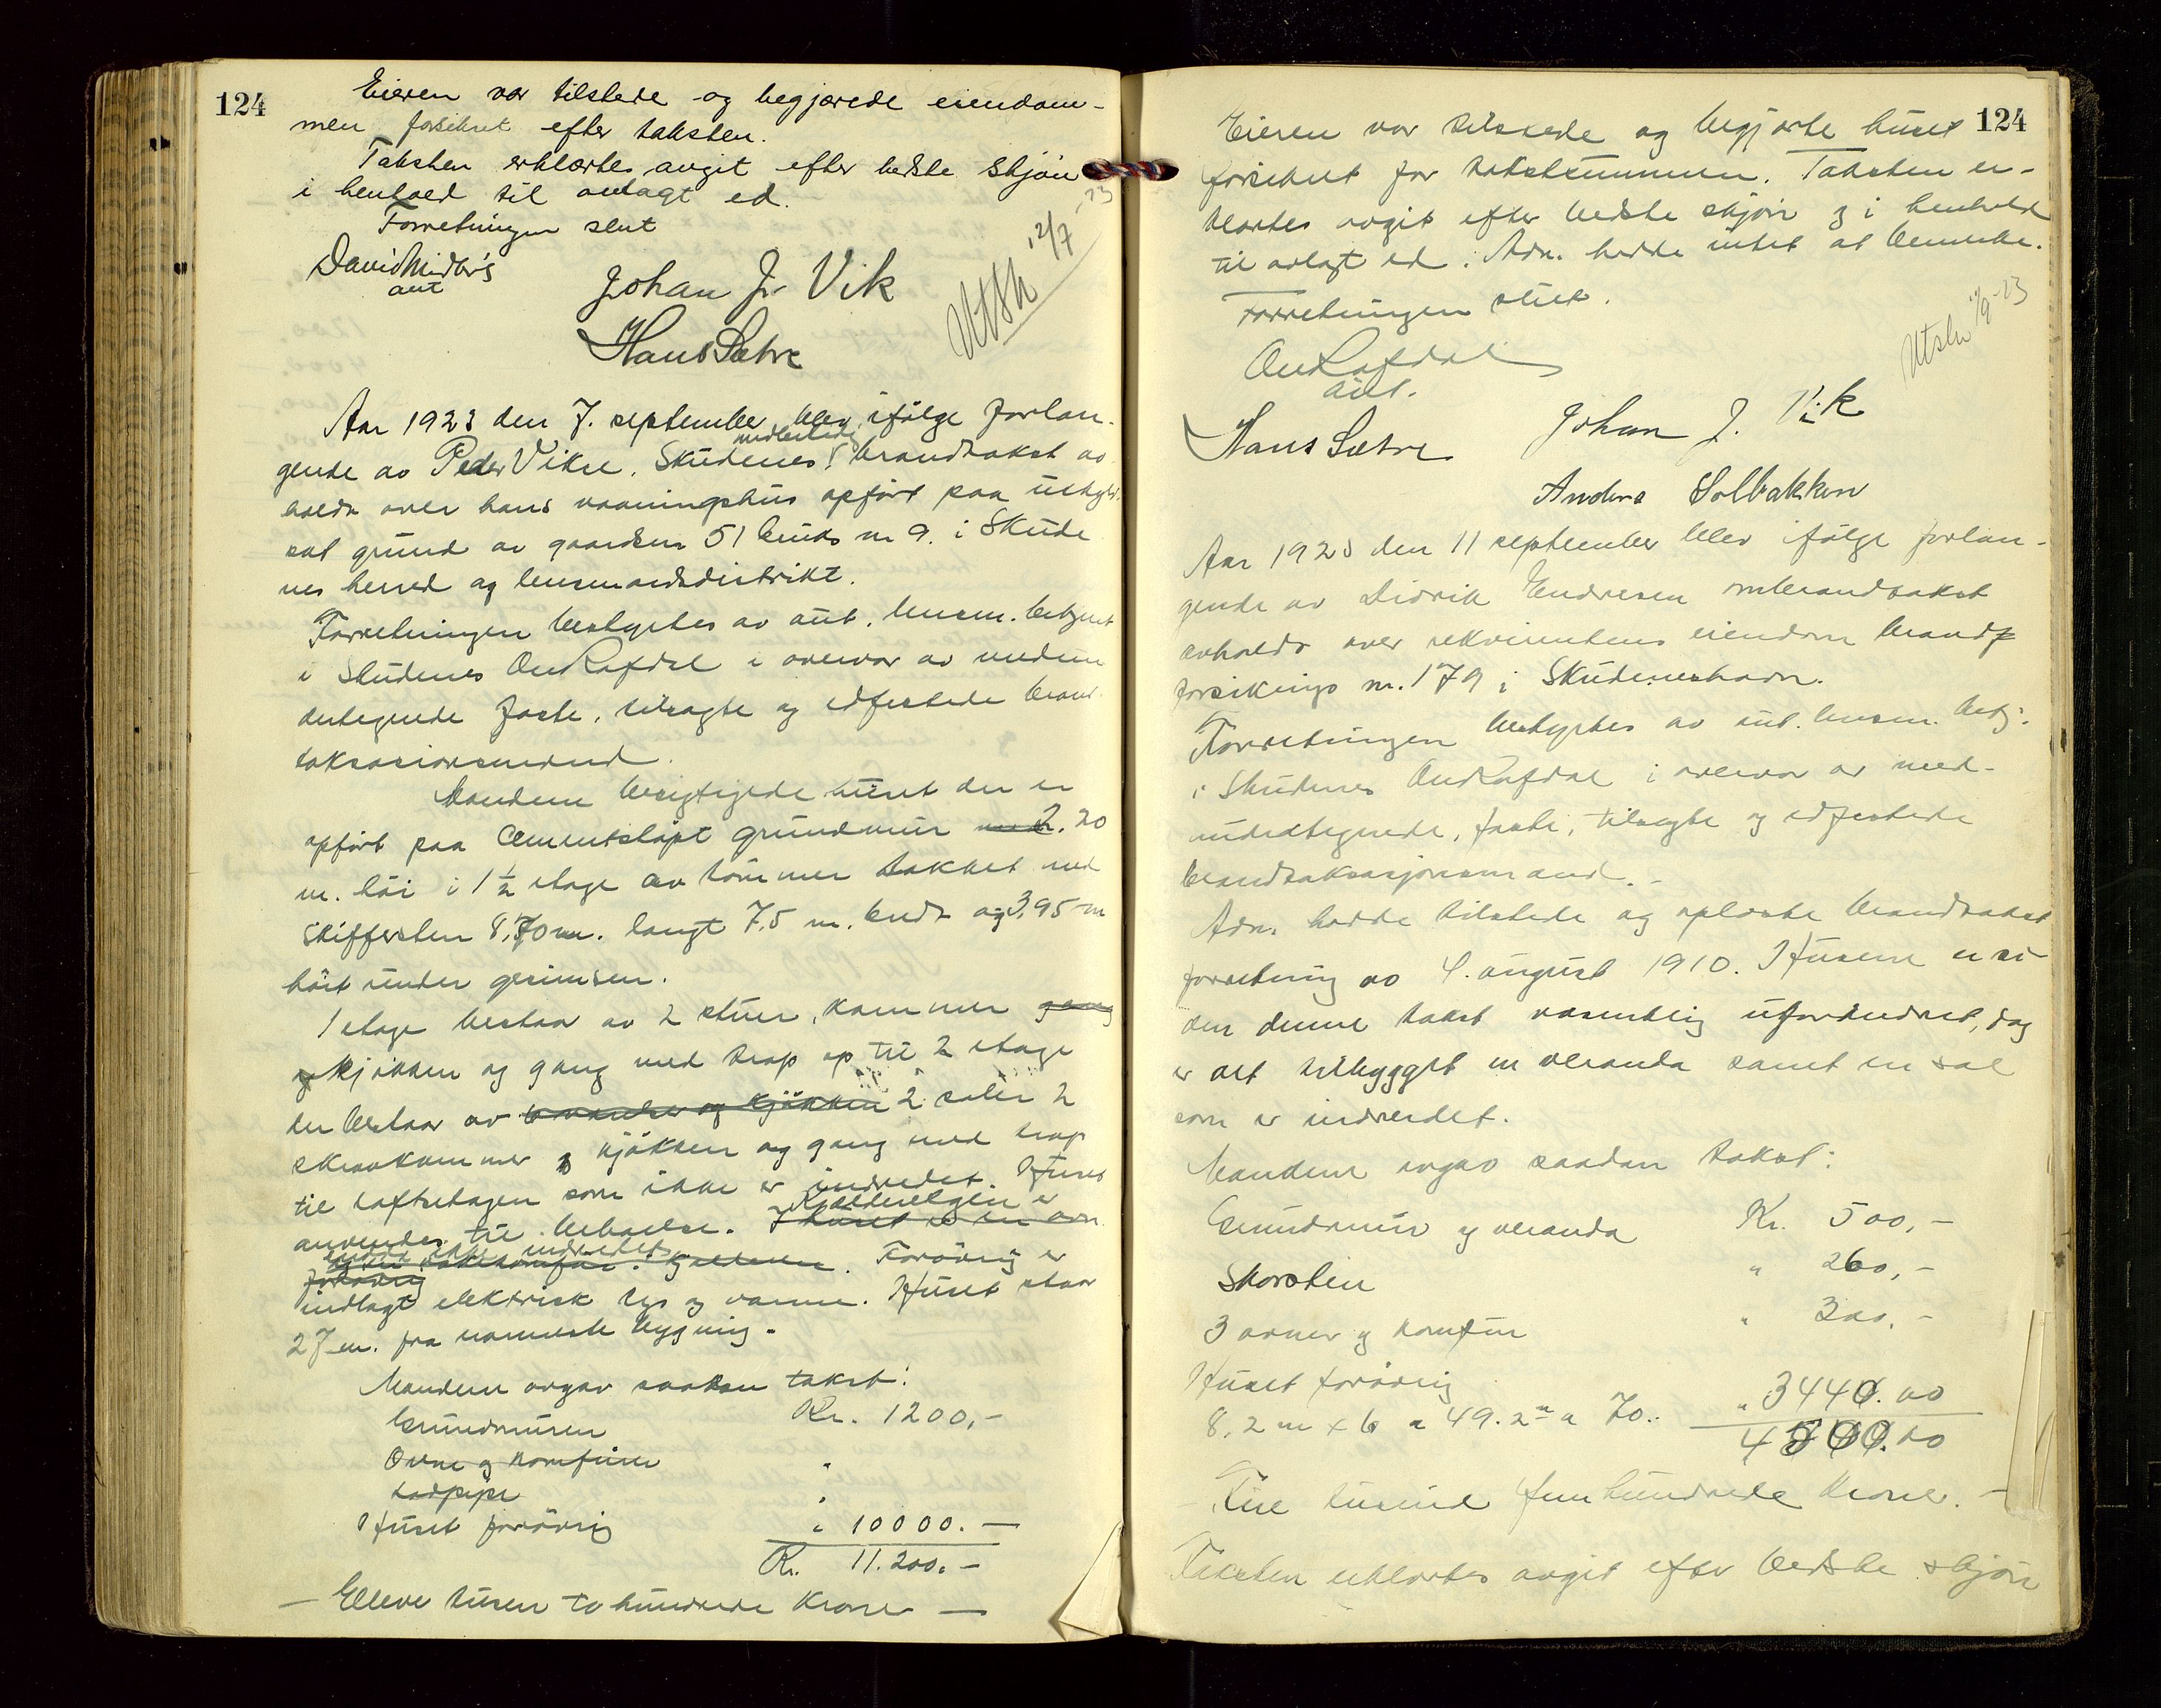 124
Eieren var tilstede og begjærede eiendom-
men forsikret efter taksten.
Taksten erklærtes avgit efter bedste skjøn
i henhold til avlagt ed.
Forretningen slut
David Midbø's
aut
Johan J. Vik
Hans Sætre
Utsk 12/7 -23
Aar 1923 den 7. september blev ifølge forlan-
gende av Peder Vikse, Skudenes brandtakst av-
holdt over hans vaaningshus opført paa utskyld-
sat grund av gaardsnr 51 bruks nr 9. i Skude
nes herred og lensmandsdistrikt.
Forretningen bestyrtes av aut. lensm. betjent
i Skudenes Ou Rafdal i overvær av neden
dertegnede faste, tilsagte og edfestede brand
taksasionsmænd.
Mændene besigtigede huset der er
opført paa cementstøpt grundmur 2.20
m. høi i 1 1/2 etage av tømmer takket med
skiffersten 8,70 m. langt 7,5 m. bredt og 3,95 m
høit under gesimsen.
1 etage bestaar av 2 stuer, kammer gang
og kjøkken og gang med trap op til 2 etage
der bestaar av 2 saler 2
skraakammer kjøkken og gang med trap
til loftsetagen som ikke er indredet. Huset
anvendes til beboelse. Kjelderetagen er
endda ikke indredet. Forøvrig er
indlagt elektrisk lys og varme. Huset staar
27 m. fra nærmeste bygning.
Mændene avgav saadan takst:
Grundmuren Kr. 1200,-
Ovne og komfurer "
Ladpipe "
Huset forøvrig " 10000.-
Kr. 11.200.-
- Elleve tusen to hundrede Kroner -
124
Eieren var tilstede og begjærte huset
forsikret for takstsummen. Taksten er-
klærtes avgit efter bedste skjøn og i henhold
til avlagt ed. Adm. hadde intet at bemerke.
Forretningen slut.
Utskr 11/9 -23
Ou Rafdal
aut.
Hans Sætre Johan J. Vik
Anders Solbakken
Aar 1923 den 11 september blev ifølge forlan-
gende av Didrik Endresen ombrandtakst
avholdt over rekvirentens eiendom brand
forsikrings nr. 179 i Skudeneshavn.
Forretningen bestyrtes av aut. lensm. betj.
i Skudenes Ou Rafdal i overvær av med-
undertegnede, faste, tilsagte og edfestede
brandtaksasjonsmænd.-
Adm. hadde tilstede og oplæste brandtakst
forretning av 4. august 1910. Husene er si-
den denne takst væsentlig uforandret, dog
er det tilbygget en veranda samt en sal
som er indredet.
Mændene avgav saadan takst:
Grundmur og veranda Kr. 500,-
Skorsten " 260,-
3 ovner og komfur " 300,-
Huset forøvrig
8,2 m x 6 = 49.2 m² a 70.. " 3440.00
4500.00
- Fire tusind fem hundrede Kroner. -
Taksten erklærtes avgit efter bedste skjøn